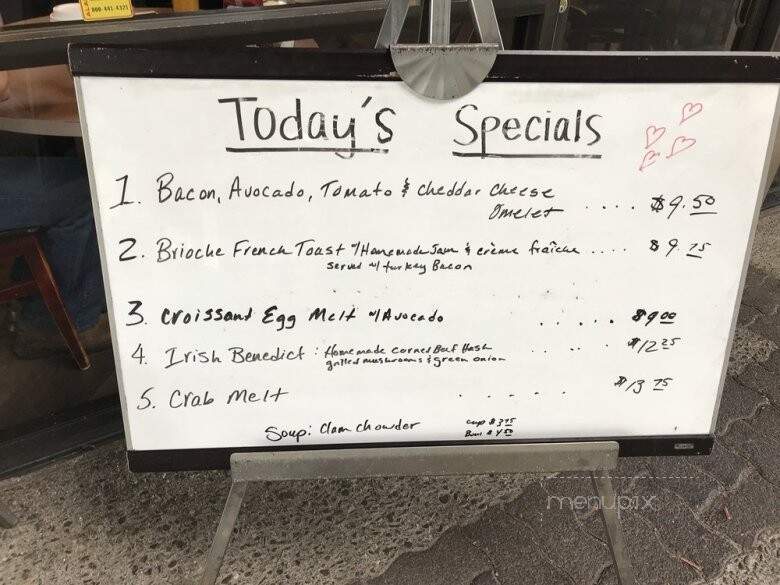 800-441-4321
Today's Specials
1. Bacon, Avocado, Tomato & cheddar cheese
Omelet .... $9.50
2. Brioche French Toast w/Homemade Jam & crème fraîche .... $9.75
served w/ turkey Bacon
3. Croissant Egg Melt w/Avocado ..... $9.00
4. Irish Benedict: Homemade Corned Beef Hash .... $12.25
grilled mushrooms & green onion
5. Crab Melt ..... $13.75
Soup: Clam chowder cup $3.75
Bowl $4.50
menupix